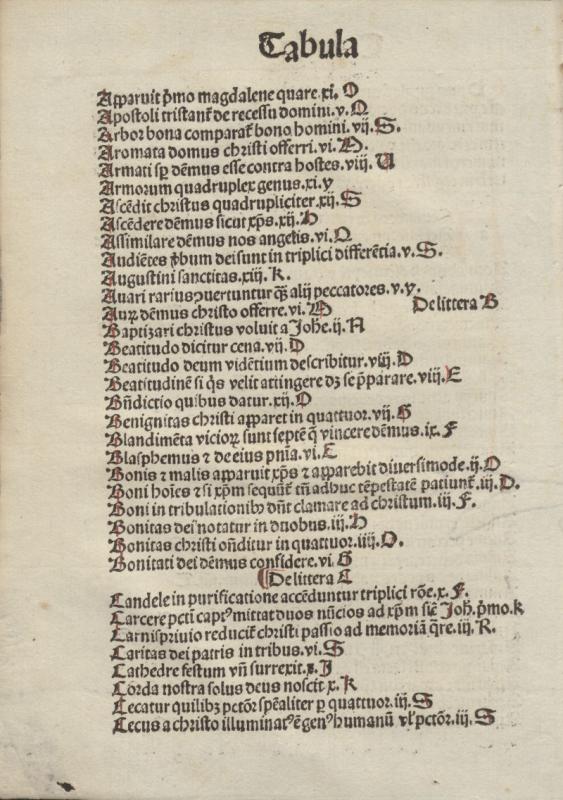 Tabula
Apparuit p̄mo magdalene quare.xi. O
Apostoli tristant᷑ de recessu domini.v.Q
Arbor bona comparat᷑ bono homini.vij.S.
Aromata domus christi offerri.vi.
Armati sp̄ dēmus esse contra hostes.viij.
Armorum quadruplex genus.xi.y
Ascēdit christus quadrupliciter.xij.S
Ascēdere dēmus sicut xp̄s.xij.
Assimilare dēmus nos angelis.vi.Q
Audiētes ꝟbum dei sunt in triplici differētia.v.S.
Augustini sanctitas.xiij.K.
Avari rarius ꝯuertuntur qȝ alij peccatores.v.y.
Auꝝ dēmus christo offerre.vi.
De littera B
Baptizari christus voluit a Joh̄e.ij.A
Beatitudo dicitur cena.vij.D
Beatitudo deum vidētium describitur.viij.D
Beatitudinē si q̄s velit attingere dȝ se p̄parare.viij.E
Bn̄dictio quibus datur.xij.O
Benignitas christi apparet in quattuor.vij.G
Blandimēta vicioꝝ sunt septē q̄ vincere dēmus.ix.F
Blasphemus ⁊ de eius pn̄ia.vi.E
Bonis ⁊ malis apparuit xp̄s ⁊ apparebit diuersimode.ij.O
Boni hoīes ⁊ si xp̄m sequūt᷑ tn̄ adhuc tēpestatē patiunt᷑.iij.D.
Boni in tribulationibꝰ dn̄t clamare ad christum.iij.F.
Bonitas dei notatur in duobus.iij.
Bonitas christi on̄ditur in quattuor.iiij.O.
Bonitati dei dēmus confidere.vi.G
De littera C
Candele in purificatione accēduntur triplici rōe.x.F.
Carcere pctī captꝰ mittat duos nūcios ad xp̄m sic̄ Joh̄.p̄mo.k
Carnispriuio reducit᷑ christi passio ad memoriā q̄re.iij.R.
Caritas dei patris in tribus.vi.S
Cathedre festum vn̄ surrexit.x.J
Corda nostra solus deus noscit.x.K
Cecatur quilibȝ pctōr sp̄ealiter ꝑ quattuor.iij.S
Cecus a christo illuminatꝰ ē genꝰ humanū vl̓ pctōr.iij.S